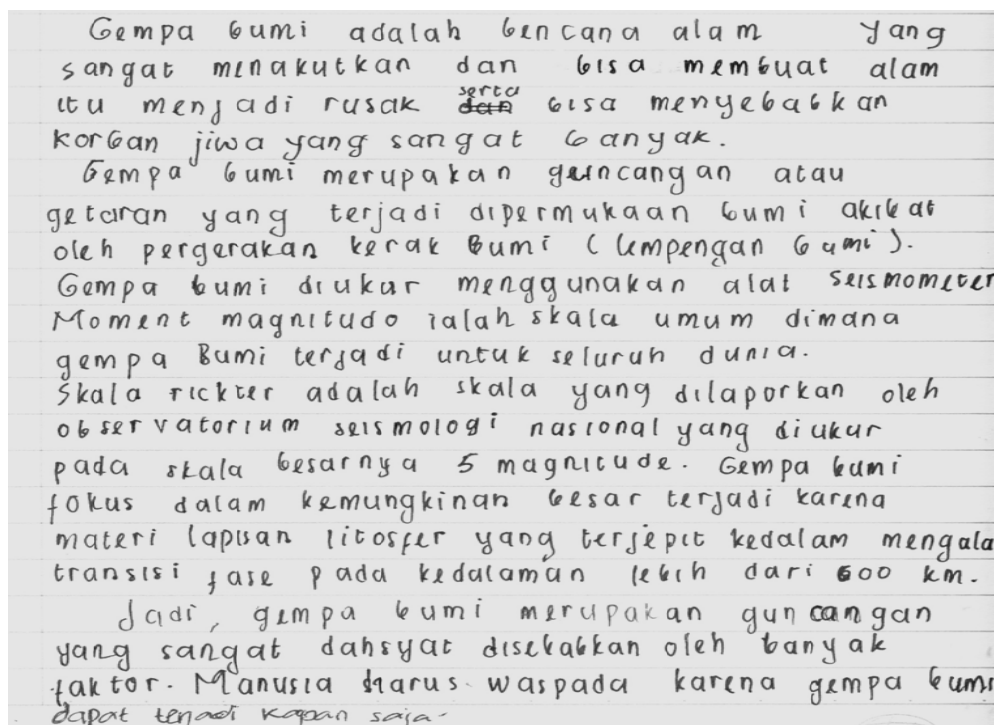 Gempa bumi adalah bencana alam yang
sangat menakutkan dan bisa membuat alam
itu menjadi rusak serta dan bisa menyebabkan
korban jiwa yang sangat banyak.
Gempa bumi merupakan guncangan atau
getaran yang terjadi dipermukaan bumi akibat
oleh pergerakan kerak Bumi (lempengan bumi).
Gempa bumi diukur menggunakan alat seismometer
Moment magnitudo ialah skala umum dimana
gempa Bumi terjadi untuk seluruh dunia.
Skala rickter adalah skala yang dilaporkan oleh
observatorium seismologi nasional yang diukur
pada skala besarnya 5 magnitude. Gempa bumi
fokus dalam kemungkinan besar terjadi karena
materi lapisan litosfer yang terjepit kedalam mengala
transisi fase pada kedalaman lebih dari 600 km.
Jadi, gempa bumi merupakan guncangan
yang sangat dahsyat disebabkan oleh banyak
faktor. Manusia harus waspada karena gempa bumi
dapat terjadi kapan saja.